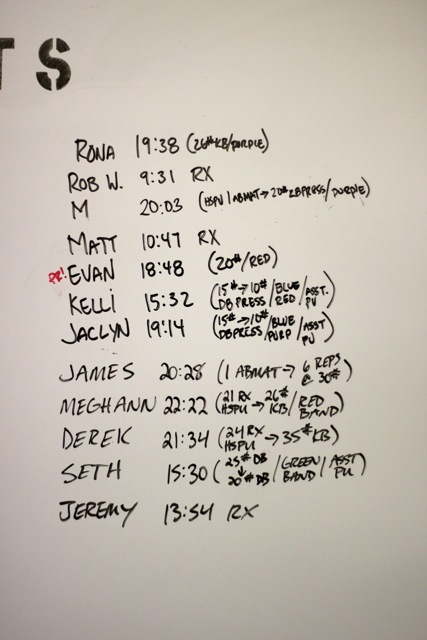 TS
RONA 19:38 (26# KB/PURPLE)
ROB W. 9:31 RX
M 20:03 (HSPU 1 ABMAT → 20# DBPRESS/PURPLE)
MATT 10:47 RX
PR! EVAN 18:48 (20#/RED)
KELLI 15:32 (15# → 10# DB PRESS/BLUE RED/ASST. PU)
JACLYN 19:14 (15# → 10# DB PRESS/BLUE PURP/ASST PU)
JAMES 20:28 (1 ABMAT → 6 REPS @ 30#)
MEGHANN 22:22 (21 RX HSPU → 26# KB/RED BAND)
DEREK 21:34 (24 RX HSPU → 35# KB)
SETH 15:30 (25# DB ↓ 20# DB/GREEN BAND/ASST PU)
JEREMY 13:54 RX